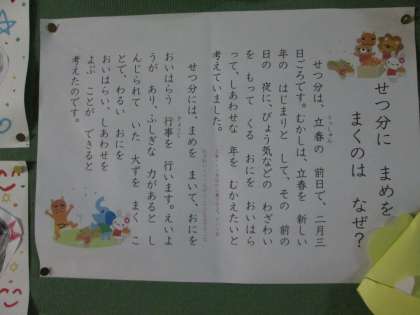 せつ分に まめを
まくのは なぜ？
せつ分は、立春の 前日で、二月三
日ごろです。むかしは、立春を 新しい
年の はじまりと して、その 前の
日の 夜に、びょう気などの わざわい
を もって くる おにを おいはら
って、しあわせな 年を むかえたいと
考えていました。
せつ分には、まめを まいて、おにを
おいはらう 行事を 行います。えいよ
うが あり、ふしぎな 力があると し
んじられて いた 大ずを まく こ
とで、わるい おにを
おいはらい、しあわせを
よぶ ことが できると
考えたのです。